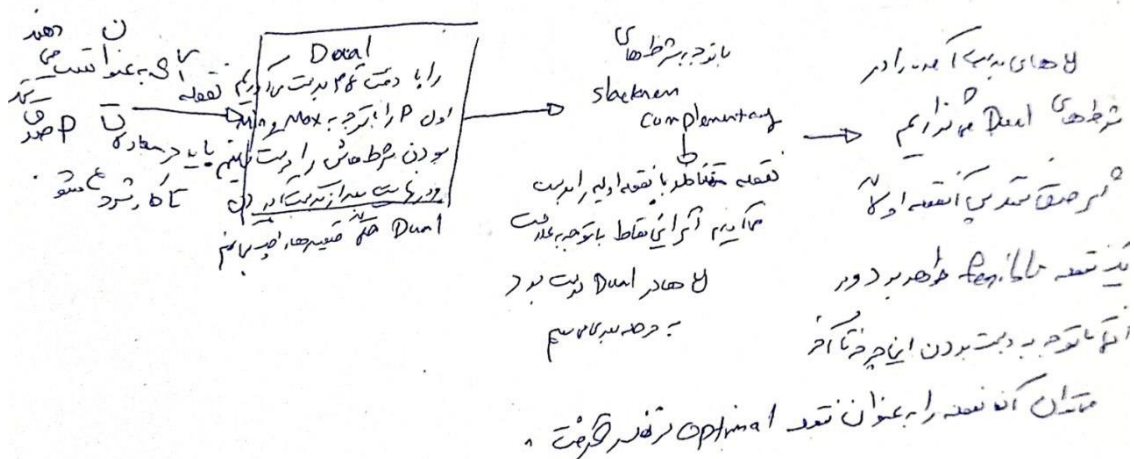 نقطه ای به عنوان تست می دهند
باید در معادلات P صدق کند
تا کار شروع شود
Dual
را با دقت تمام بدست می آوریم
اول P را با توجه به max و min
بودن شرط هایش را درست کنیم
و در نهایت بعد از بدست آوردن
Dual
با توجه به شرط های
slackness
complementary
نقطه متناظر با نقطه اولیه را بدست
می آوریم اگر این نقاط با توجه به علامت
y ها در Dual درست بود
به مرحله بعدی می رسیم
y های بدست آمده را در
شرط های Dual می گذاریم
اگر صدق کردند پس آن نقطه اولاً
یک نقطه feasible خواهد بود و در
با توجه به درست بودن این چرخه تا آخر
می توان آن نقطه را به عنوان نقطه optimal در نظر گرفت.